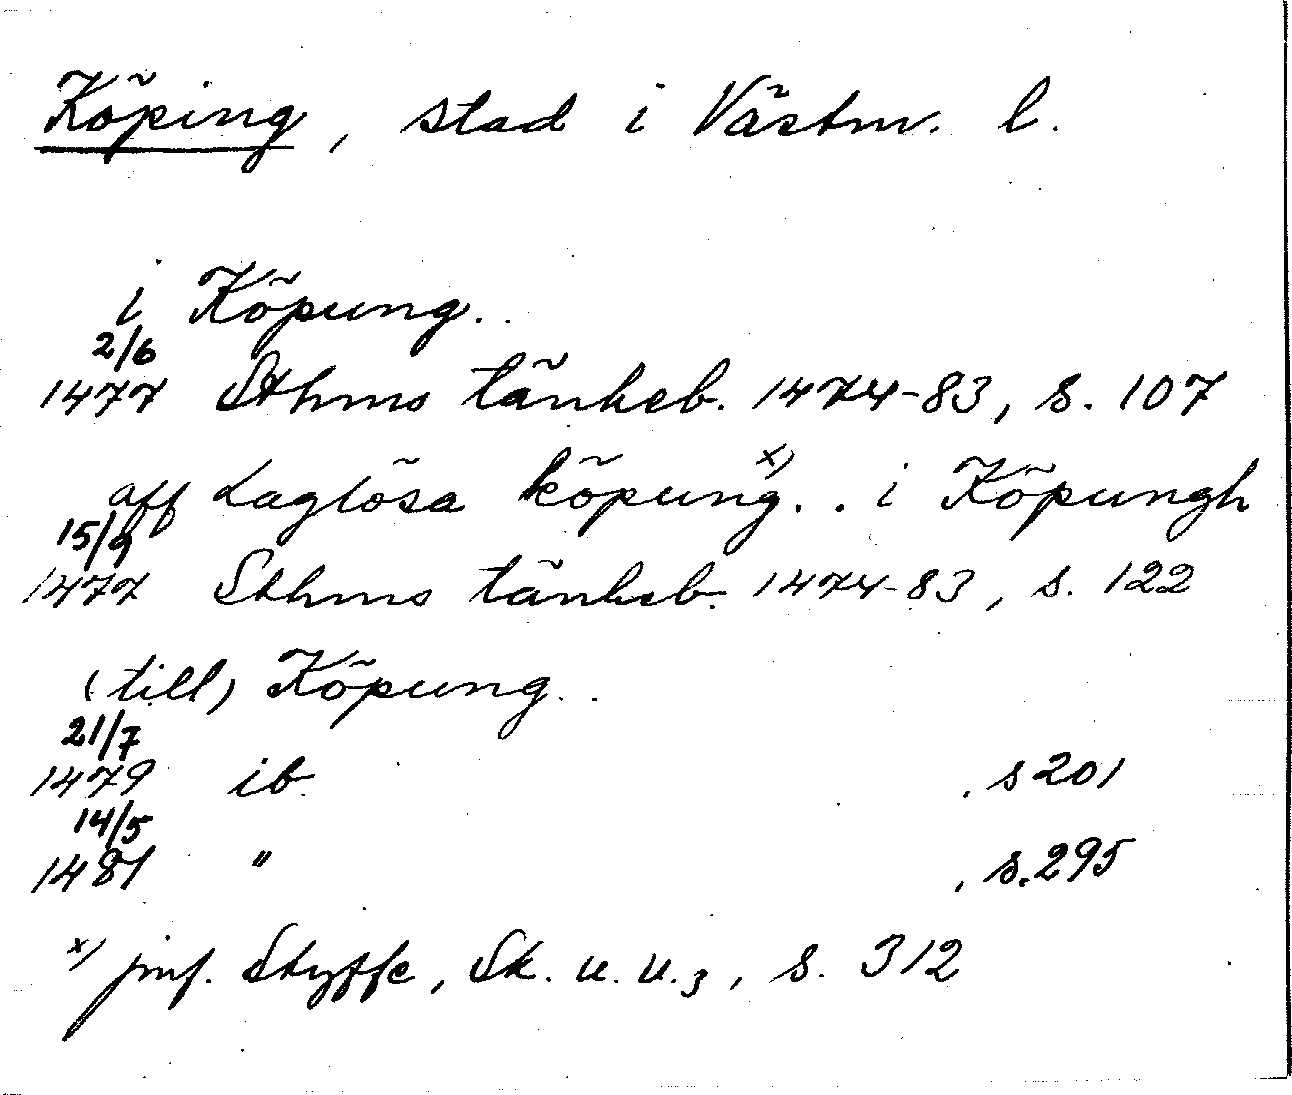 Köping, stad i Västm. l.
i Köpung..
2/6
1477 Sthms tänkeb. 1474-83, s. 107
aff Laglösa köpung x).. i Köpungh
15/9
1477 Sthms tänkeb. 1474-83, s. 122
(till) Köpung..
21/7
1479 ib. . s 201
14/5
1481 " , s. 295
x) jmf. Styffe, Sk. u. u.3, s. 312